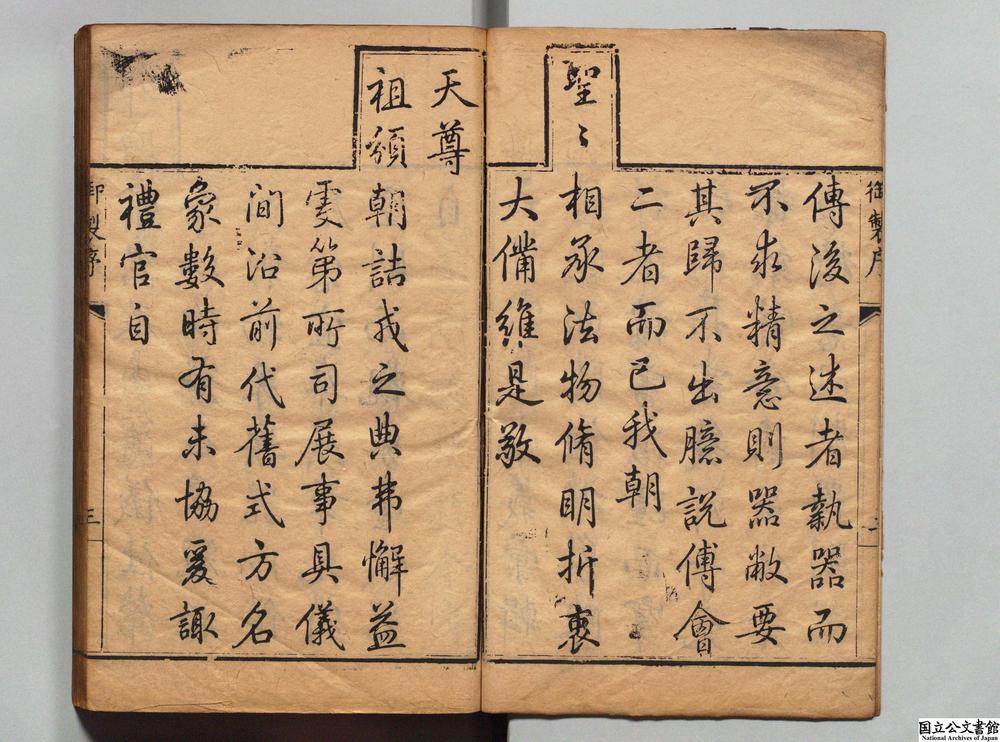 御製序
二
傳後之述者執器而
不求精意則器敝要
其歸不出臆說傅會
二者而已我朝
聖〻相承法物脩明折衷
大備維是敬
天尊
祖頒朝詰戎之典弗懈益
虔第所司展事具儀
間沿前代舊式方名
象數時有未協爰諏
禮官自
御製序
三
国立公文書館
National Archives of Japan